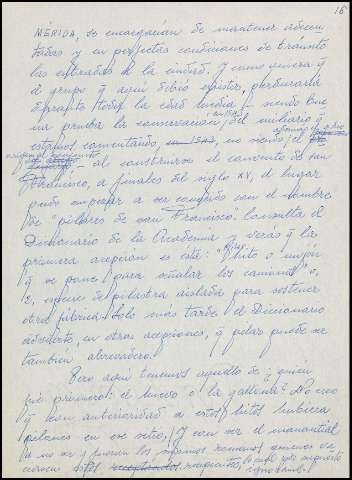 16
MÉRIDA, se encargarían de mantener adecen-
tadas y en perfectas condiciones de tránsito
las entradas a la ciudad. Y como quiera q
el grupo q aquí debió existir, perduraría
durante toda la edad media — siendo bue
na prueba la conservación, en 1543, del miliario q
estamos comentando, en 1543, no siendo el
— al construirse el convento de San
Francisco, a finales del siglo XV, el lugar
pudo empezar a ser conocido con el nombre
de "pilares de San Francisco". Consulta el
Diccionario de la Academia y verás q la
primera acepción es esta: "Pilar: Hito o mojón
q se pone para señalar los caminos" o,
2, especie de pilastra aislada para sostener
otra fábrica. Solo más tarde el Diccionario
advierte, en otras acepciones, q pilar puede ser
también abrevadero.
Pero aquí tenemos aquello de ¿quién
fué primero: el huevo o la gallina? No creo
q con anterioridad a estos hitos hubiera
pilares en ese sitio, y con ser el manantial
a no ser q fueran los mismos romanos quienes
estos receptáculos